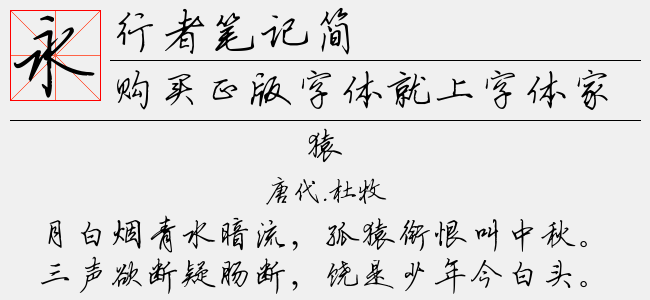 永
行者笔记简
购买正版字体就上字体家
猿
唐代.杜牧
月白烟青水暗流，孤猿衔恨叫中秋。
三声欲断疑肠断，饶是少年今白头。